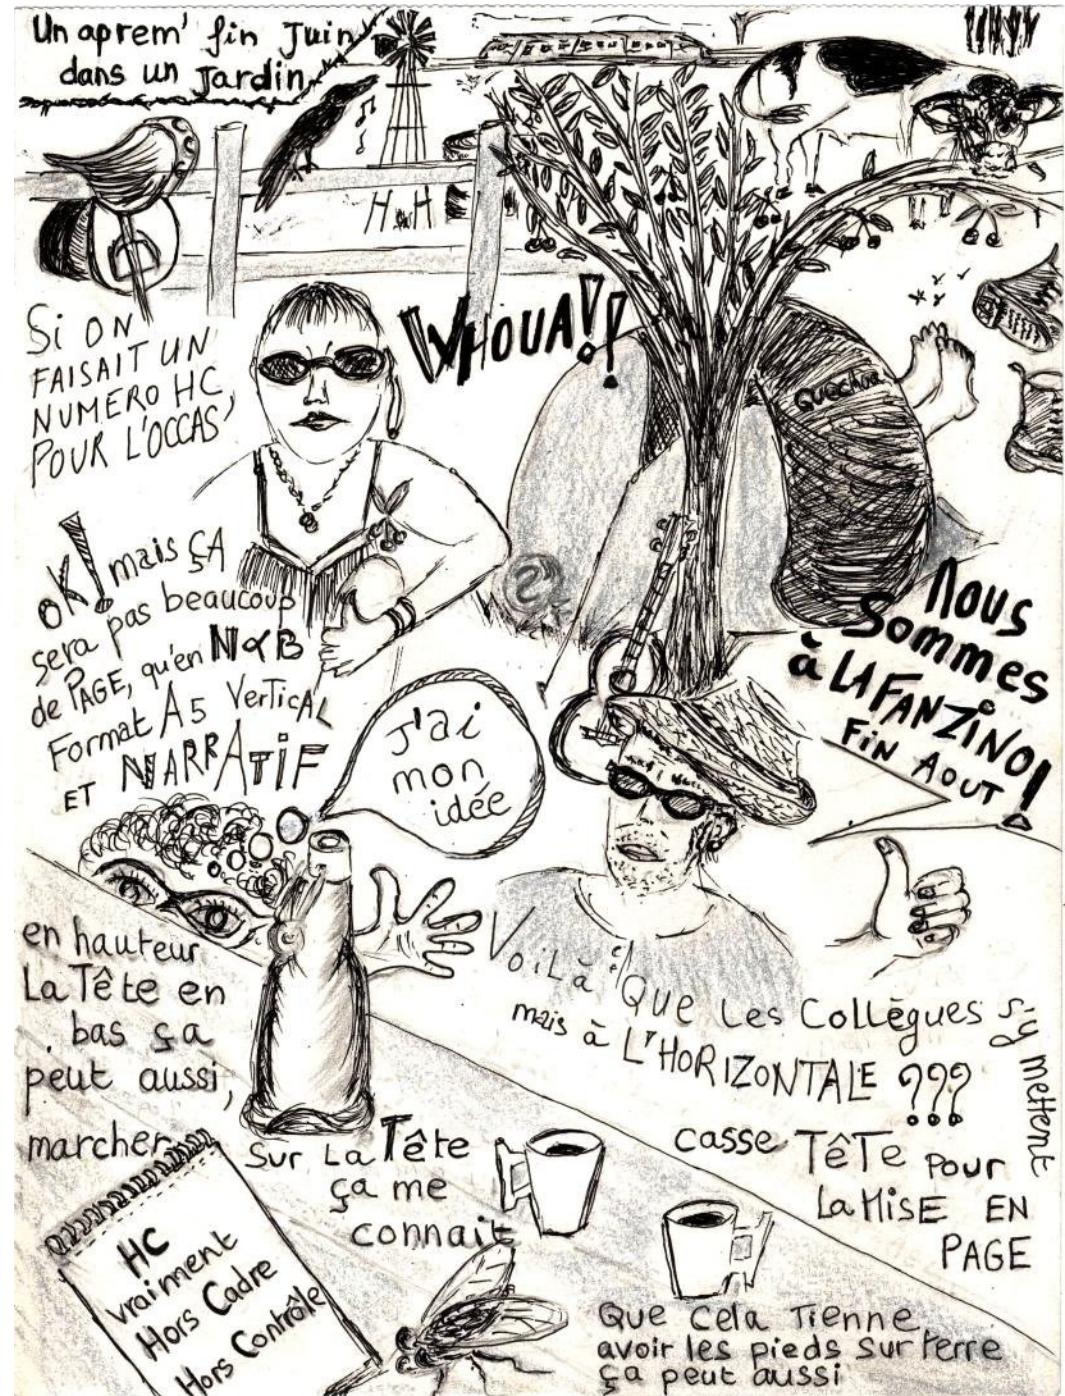 Un aprem' fin Juin
dans un Jardin
WHOUA!!
Si ON
FAISAIT UN
NUMERO HC
POUR L'OCCAS'
QUECHUA
OK! mais ÇA
sera pas beaucoup
de PAGE, qu'en N&B
Format A5 VerticAL
ET NARRATIF
Nous
Sommes
à LA FANZINO!
FiN AOUT
J'ai
mon
idée
en hauteur
La Tête en
bas ça
peut aussi,
marcher
Sur La Tête
ça me
connait
Voilà QUE Les Collègues s'y mettent
mais à L'HORIZONTALE ???
casse TÊTe pour
La MisE EN
PAGE
HC
vraiment
Hors Cadre
Hors Contrôle
Que cela Tienne
avoir les pieds sur terre
ça peut aussi